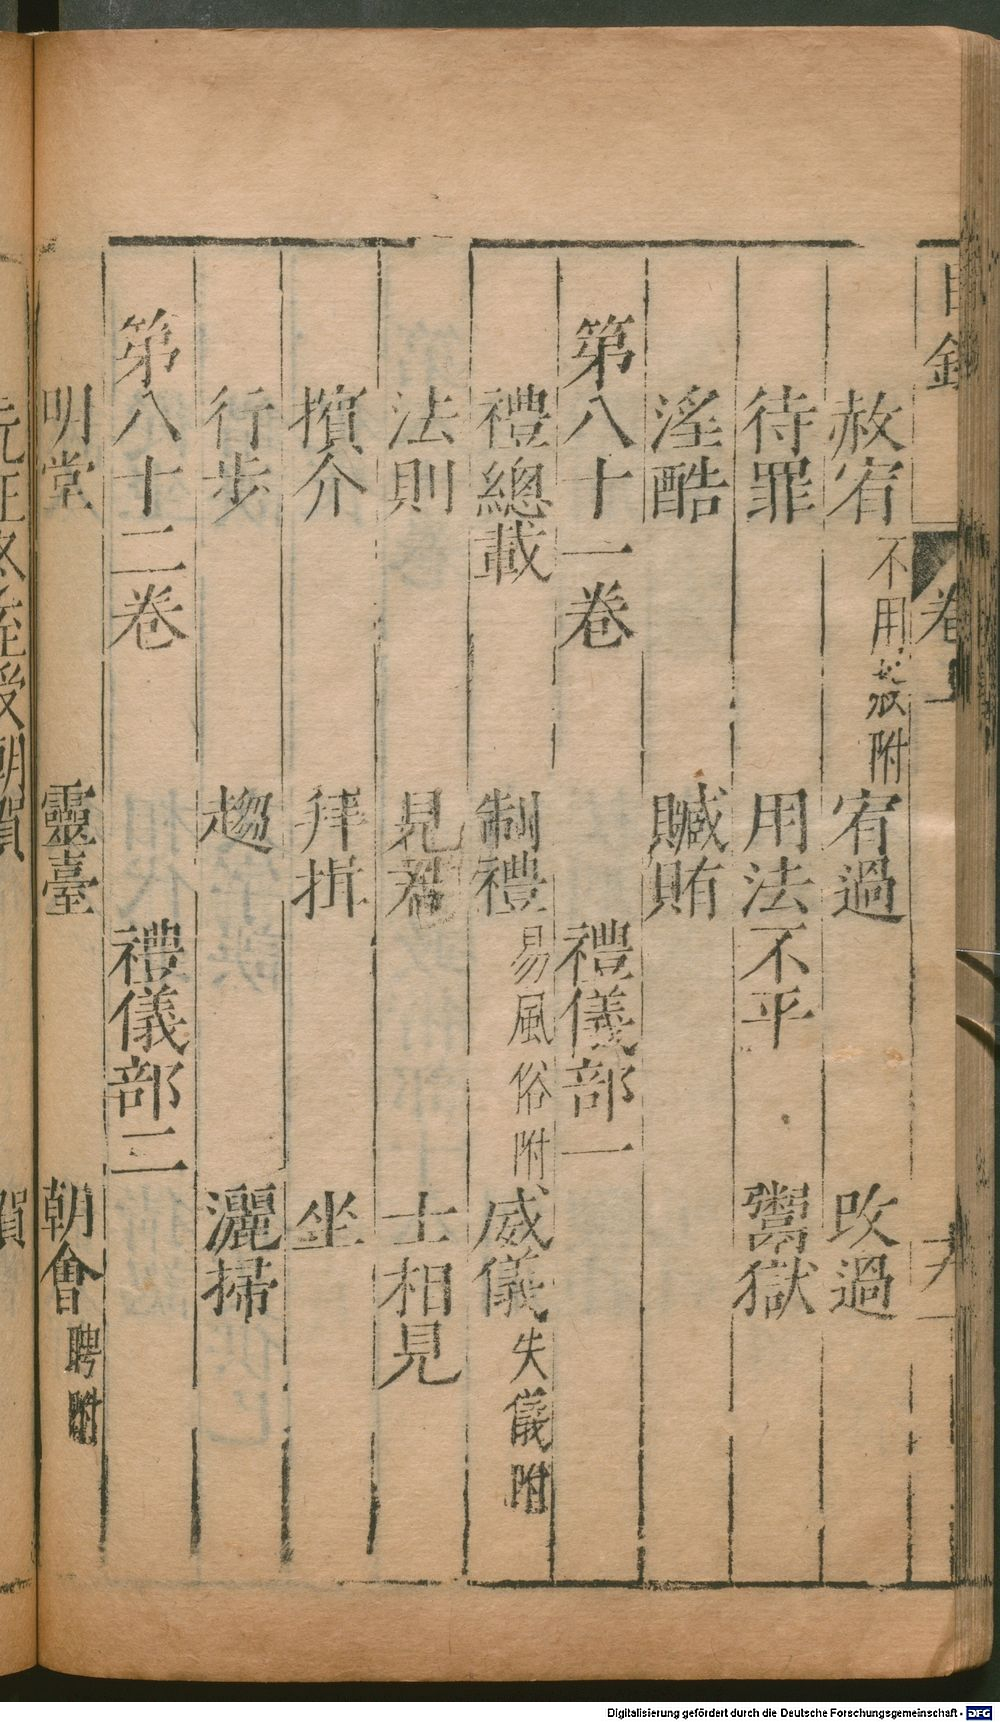 目錄 卷
赦宥 不用赦附 宥過 改過
待罪 用法不平 鬻獄
淫酷 贓賄
第八十一卷 禮儀部一
禮總載 制禮 易風俗附 威儀 失儀附
法則 見君 士相見
擯介 拜揖 坐
行步 趨 灑掃
第八十二卷 禮儀部二
明堂 靈臺 朝會 聘附
元正冬至受朝賀 賀
Digitalisierung gefördert durch die Deutsche Forschungsgemeinschaft - DFG